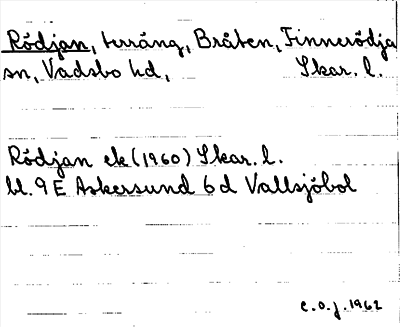 Rödjan, terräng, Bråten, Finnerödja
sn, Vadsbo hd, Skar. l.
Rödjan ek (1960) Skar. l.
bl. 9 E Askersund 6 d Vallsjöbol
C. O. J. 1962